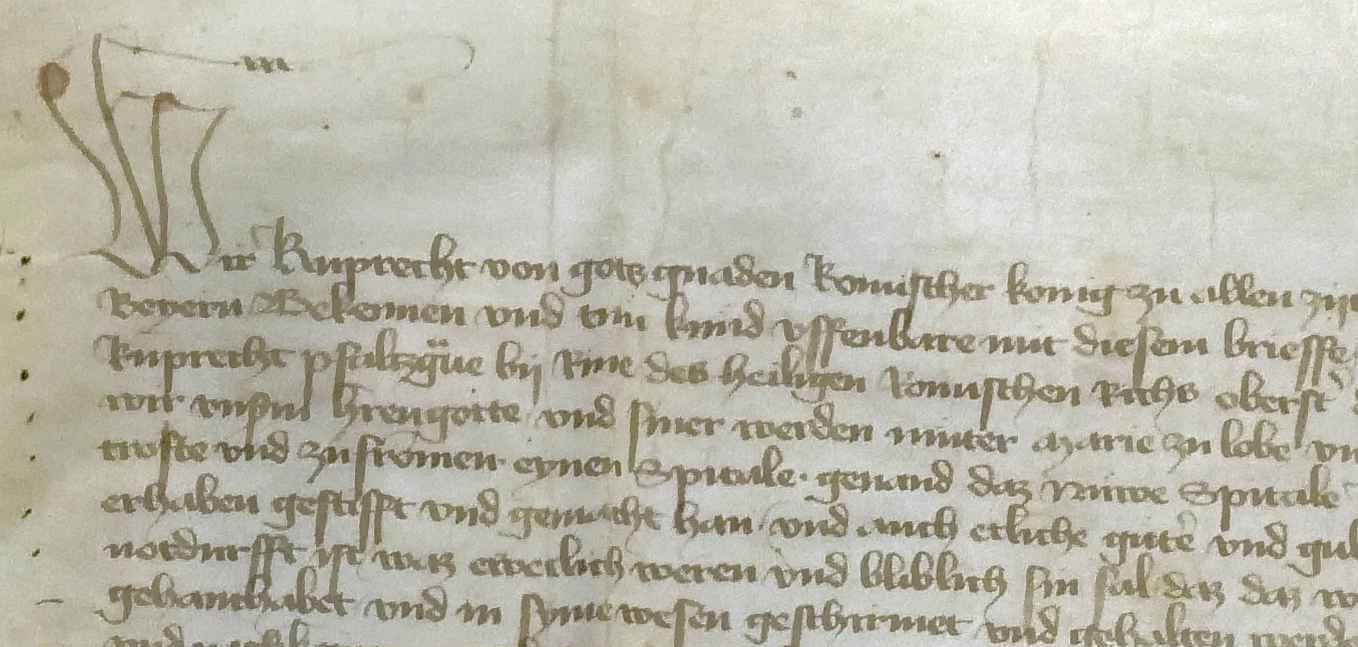 Wir Ruprecht von gots gnaden Romischer konig zu allen zijt
Beyern Bekennen vnd tun kund vffenbare mit diesem brieffe
Ruprecht pfaltzgue by Rine des heiligen Romischen Richs oberst
wir vnserm hrengotte vnd siner werden muter Marie zu lobe vn
troste vnd zu fromen eynen Spitale · genand daz Nuwe Spitale
erhaben gestifft vnd gemacht han · vnd auch etliche gute vnd gul
notdurfft ist waz eweclich weren vnd bliblich sin sal daz daz w
gehanthabet vnd in syme wesen geschirmet vnd gehalten werde
vnd